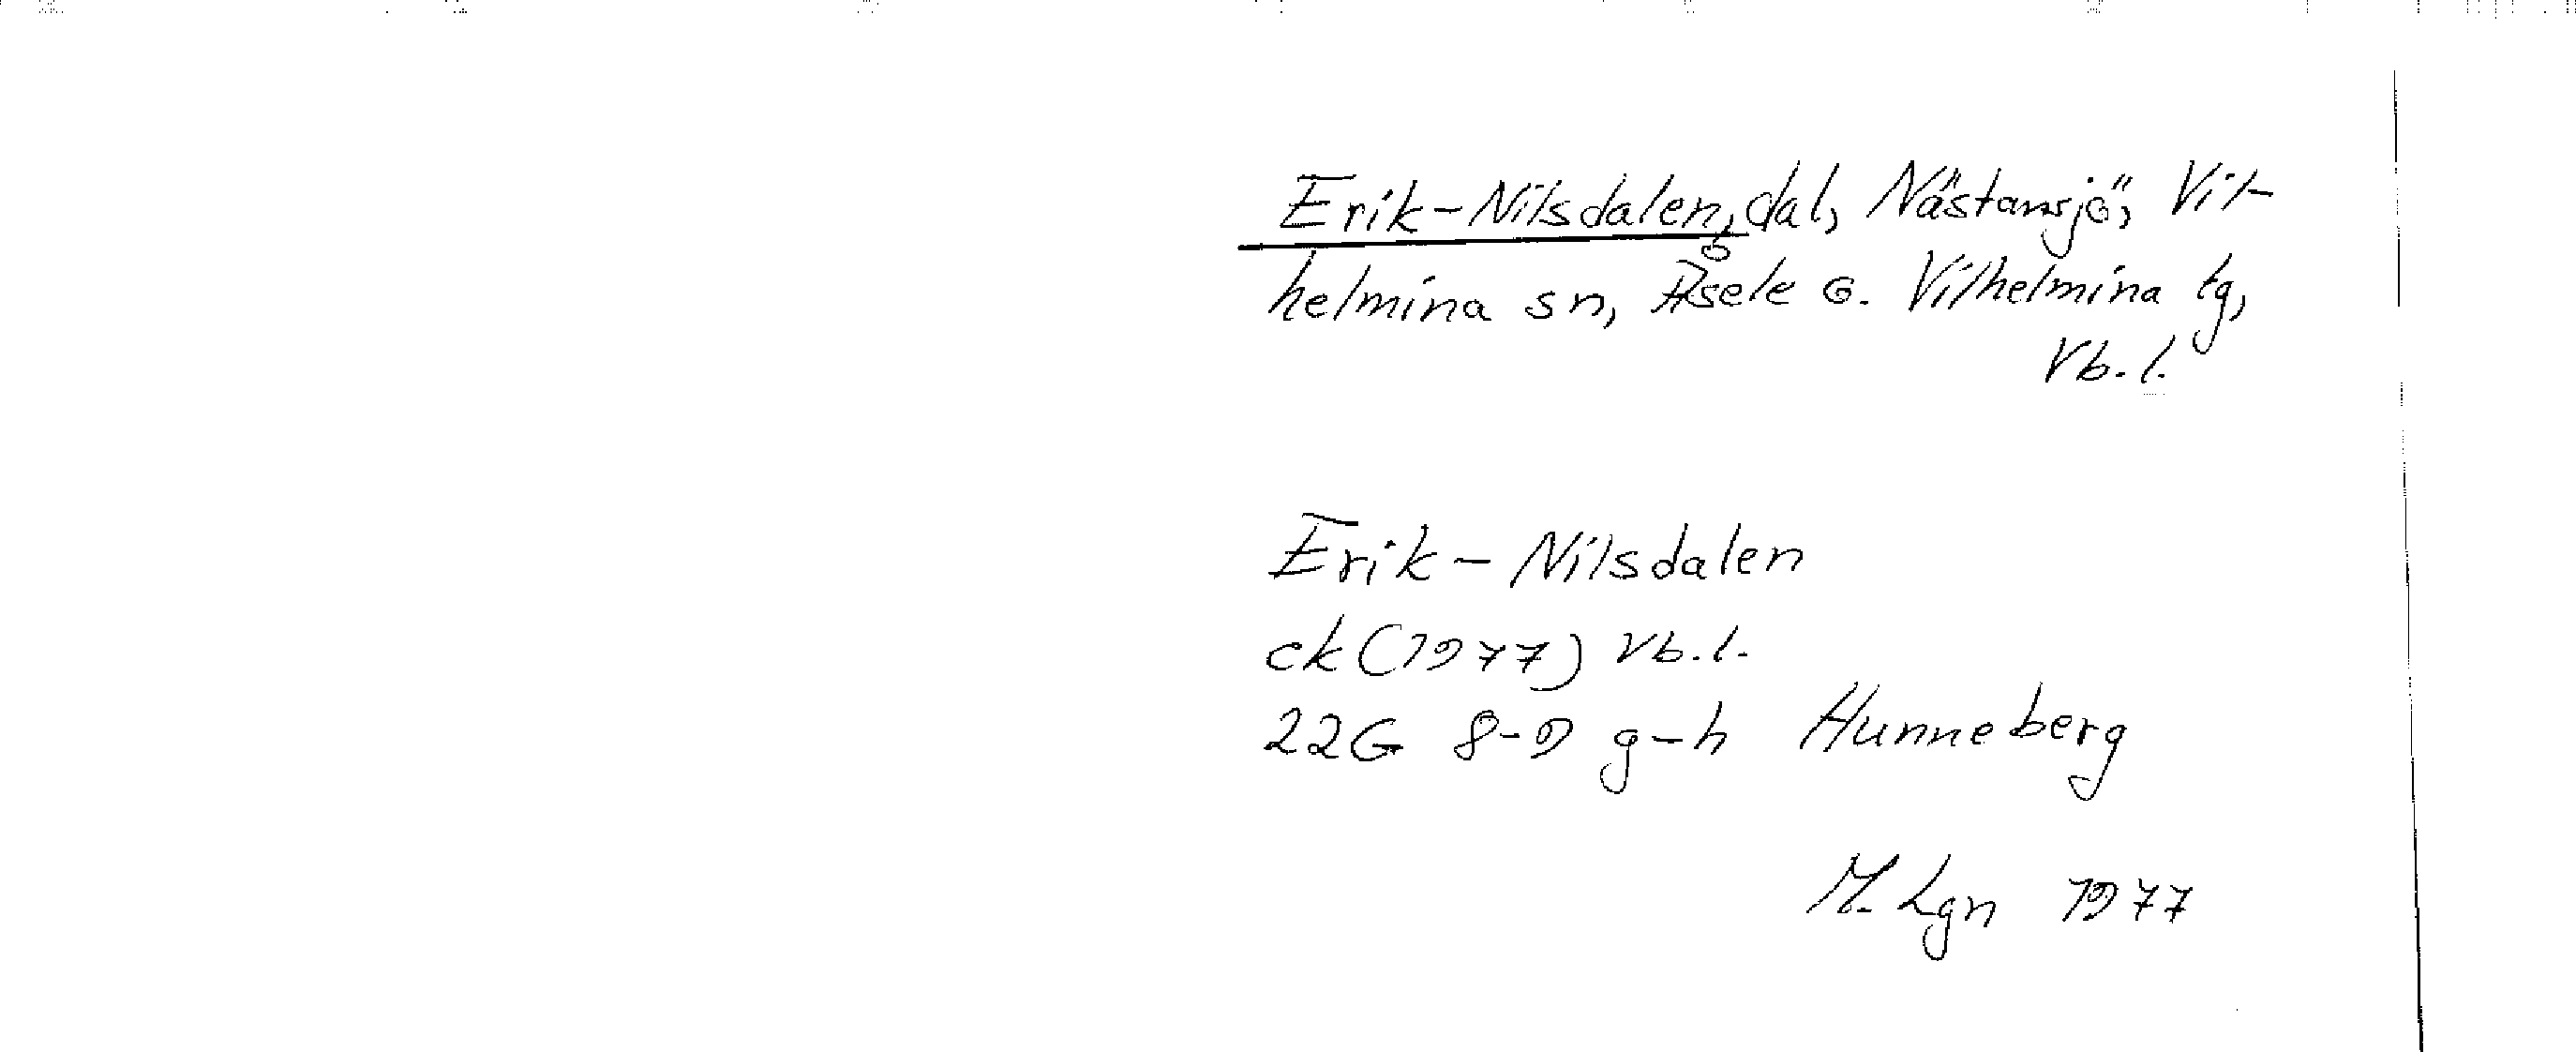 Erik-Nilsdalen, dal, Nästansjö, Vil-
helmina sn, Åsele o. Vilhelmina tg,
Vb.l.
Erik-Nilsdalen
ek(1977) Vb.l.
22G 8-9 g-h Hunneberg
M. Lgn 1977